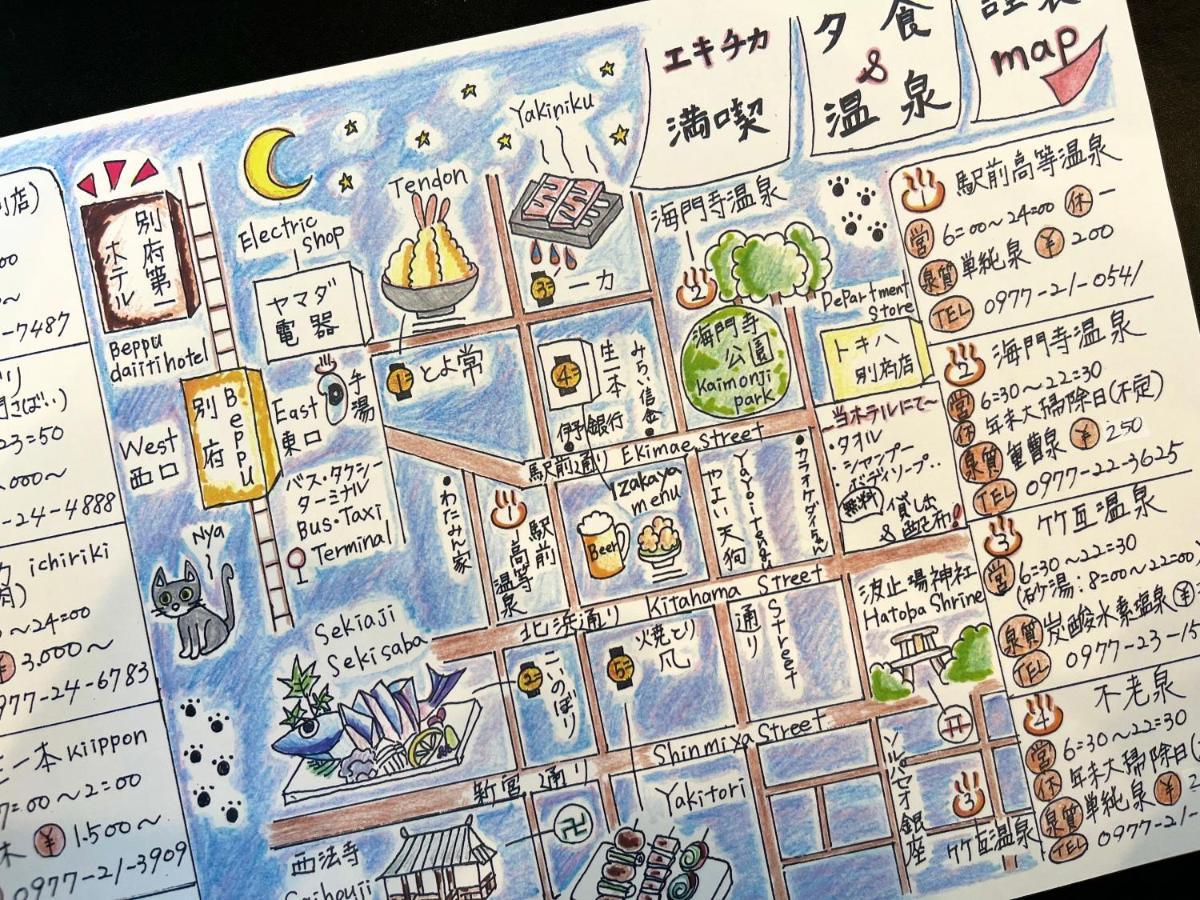 エキチカ
満喫
夕食
&
温泉
map
別店)
00
-7487
23=50
-24-4888
ichiriki
~24=00
¥ 3,000~
0977-24-6783
生一本 Kiippon
7=00~2=00
休 ¥ 1,500~
0977-21-3909
別府第一
ホテル
Beppu
daiiti hotel
Electric
Shop
ヤマダ
電器
Tendon
Yakiniku
3 一力
1 とよ常
4 生一本
みらい信金
伊予銀行
海門寺温泉
2
海門寺
公園
Kaimonji
park
Department
store
トキハ
別府店
別府
Beppu
West
西口
East
東口
手湯
バス・タクシー
ターミナル
Bus・Taxi
Terminal
Nya
駅前通り Ekimae Street
わたみん家
1 駅前
高等
温泉
Izakaya
menu
Beer
やよい天狗
Yayoitengu
カラオケダイちゃん
当ホテルにて~
・タオル
・シャンプー
・ボディソープ‥
無料 貸し出し
& 配布!
北浜通り Kitahama Street
Sekiaji
Sekisaba
2 こいのぼり
5 火焼とり
凡
通り
Street
波止場神社
Hatoba Shrine
新宮通り Shinmiya Street
西法寺
Saihouji
卍
Yakitori
ソルパセオ銀座
3
竹瓦温泉
1 駅前高等温泉
営 6=00~24=00 休 ー
泉質 単純泉 ¥ 200
TEL 0977-21-0541
2 海門寺温泉
営 6=30~22=30
休 年末大掃除日(不定)
泉質 重曹泉 ¥ 250
TEL 0977-22-3625
3 竹瓦温泉
営 6=30~22=30
(砂湯:8=00~22=00)
泉質 炭酸水素塩温泉 ¥
TEL 0977-23-15
4 不老泉
営 6=30~22=30
休 年末大掃除日(
泉質 単純泉 ¥ 2
TEL 0977-21-